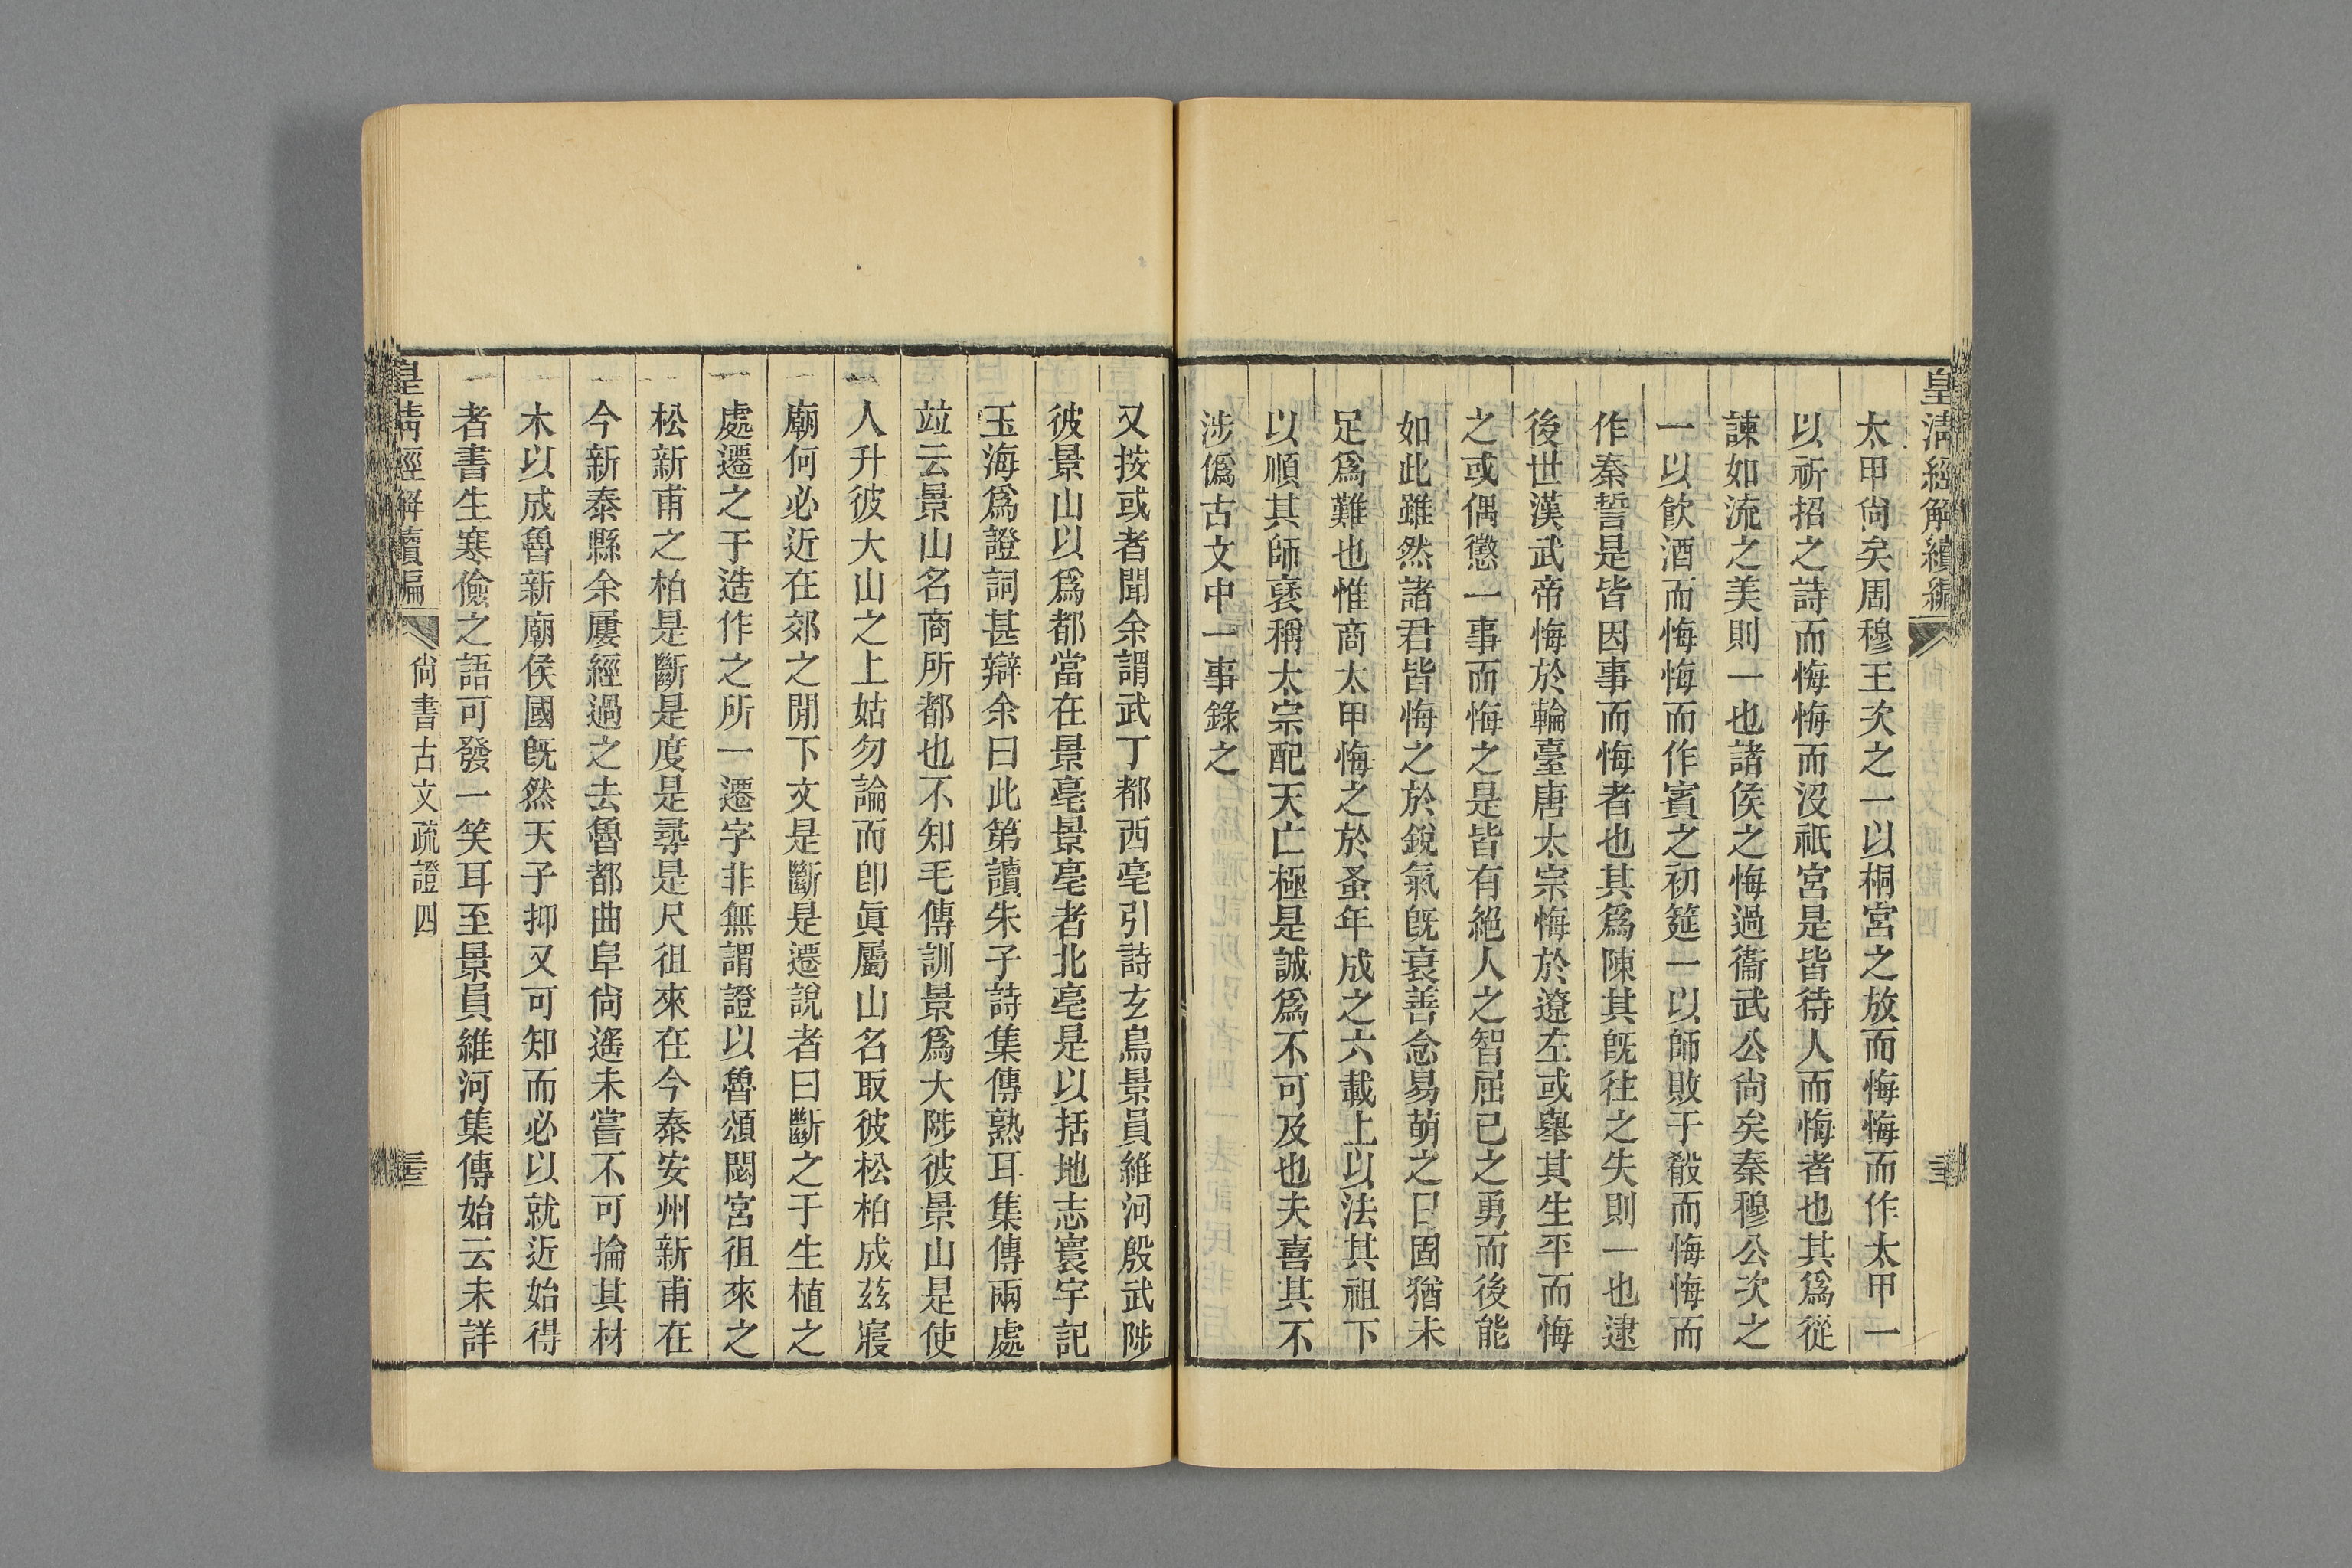 皇清經解續編
太甲尙矣周穆王次之一以桐宮之放而悔悔而作太甲一
以祈招之詩而悔悔而沒祇宮是皆待人而悔者也其爲從
諫如流之美則一也諸侯之悔過衞武公尙矣秦穆公次之
一以飮酒而悔悔而作賓之初筵一以師敗于殽而悔悔而
作秦誓是皆因事而悔者也其爲陳其旣往之失則一也逮
後世漢武帝悔於輪臺唐太宗悔於遼左或舉其生平而悔
之或偶懲一事而悔之是皆有絕人之智屈已之勇而後能
如此雖然諸君皆悔之於銳氣旣衰善念易萌之日固猶未
足爲難也惟商太甲悔之於蚤年成之六載上以法其祖下
以順其師襃稱太宗配天亡極是誠爲不可及也夫喜其不
涉僞古文中一事錄之
又按或者聞余謂武丁都西亳引詩玄鳥景員維河殷武陟
彼景山以爲都當在景亳景亳者北亳是以括地志寰宇記
玉海爲證詞甚辯余曰此第讀朱子詩集傳熟耳集傳兩處
竝云景山名商所都也不知毛傳訓景爲大陟彼景山是使
人升彼大山之上姑勿論而卽眞屬山名取彼松柏成茲寢
廟何必近在郊之閒下文是斷是遷說者曰斷之于生植之
處遷之于造作之所一遷字非無謂證以魯頌閟宮徂來之
松新甫之柏是斷是度是尋是尺徂來在今泰安州新甫在
今新泰縣余屢經過之去魯都曲阜尙遙未嘗不可掄其材
木以成魯新廟侯國旣然天子抑又可知而必以就近始得
者書生寒儉之語可發一笑耳至景員維河集傳始云未詳
皇清經解續編
尙書古文疏證四